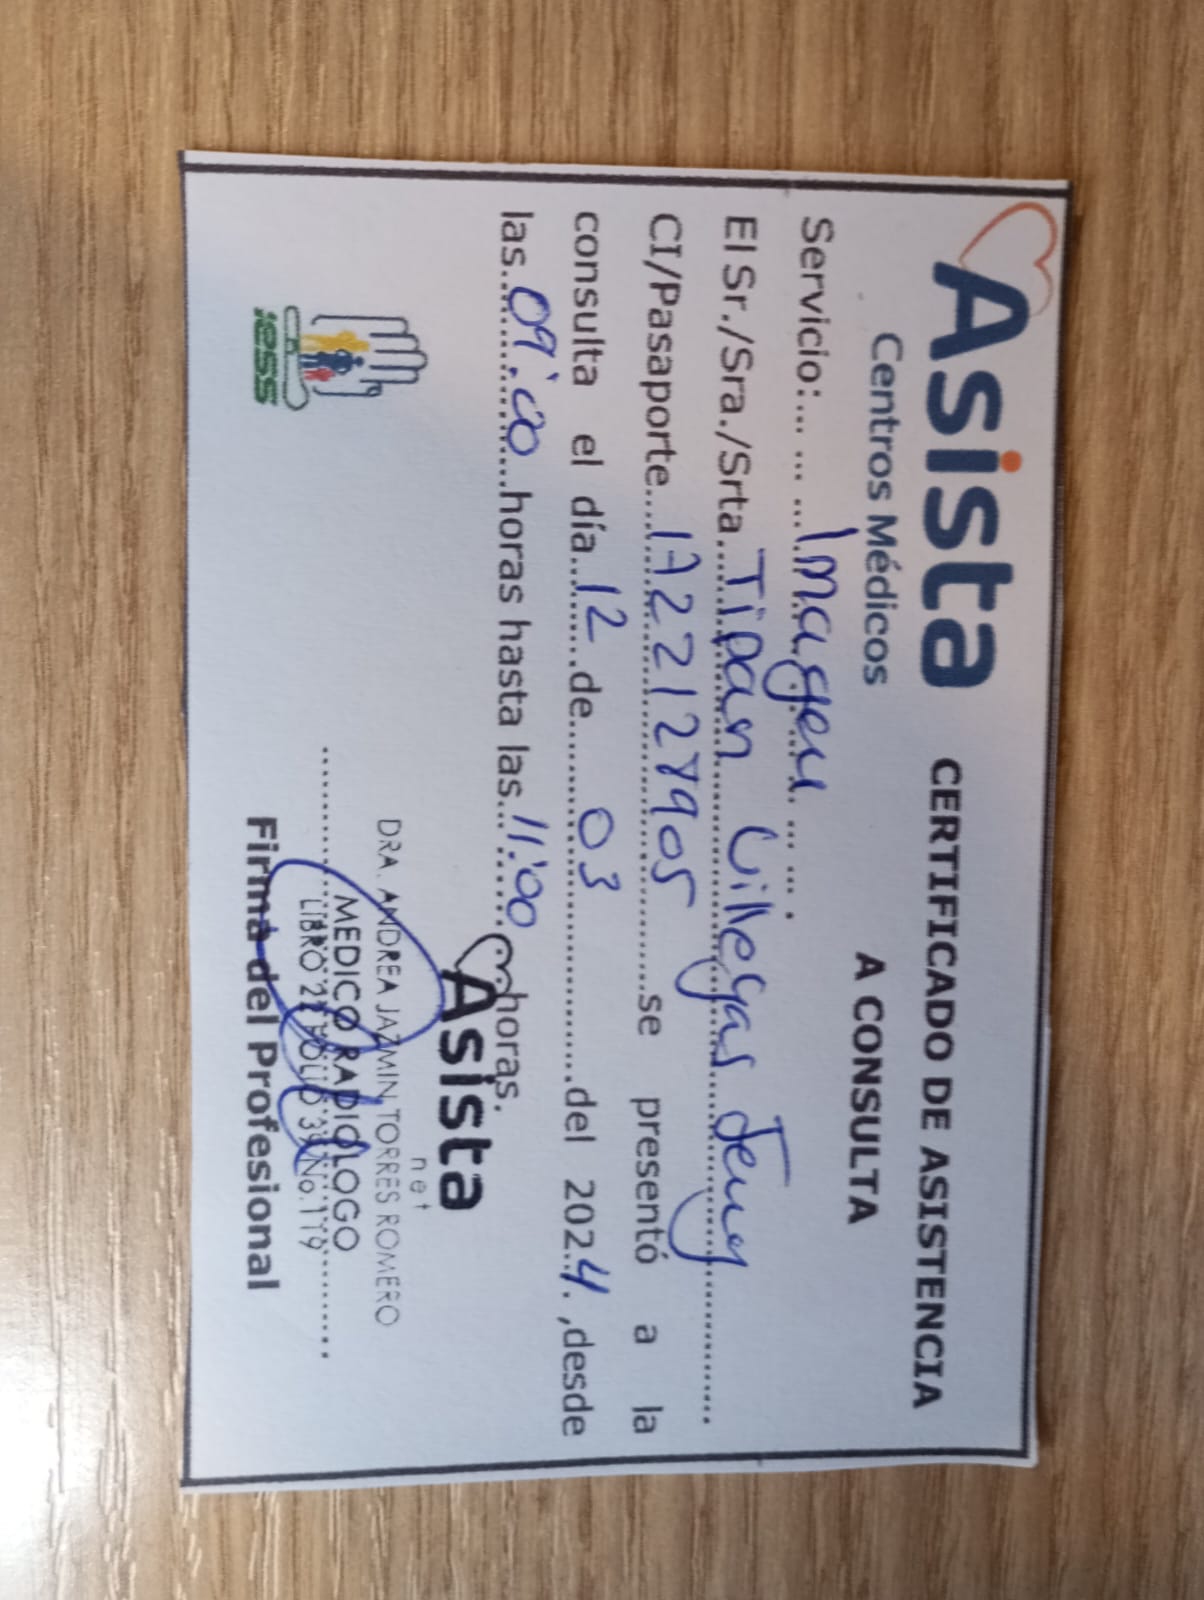 Asista
Centros Médicos
CERTIFICADO DE ASISTENCIA
A CONSULTA
Servicio:... ... ...Imagen... ... ... .
El Sr./Sra./Srta.....Tipan Villegas Jeny.....
CI/Pasaporte.....1722127905.....se presentó a la
consulta el día...12...de.....03.....del 202.4. ,desde
las...09:00...horas hasta las...11:00...horas.
Asista
net
DRA. ANDREA JAZMIN TORRES ROMERO
MEDICO RADIOLOGO
LIBRO FOLIO No.119
Firma del Profesional
iess